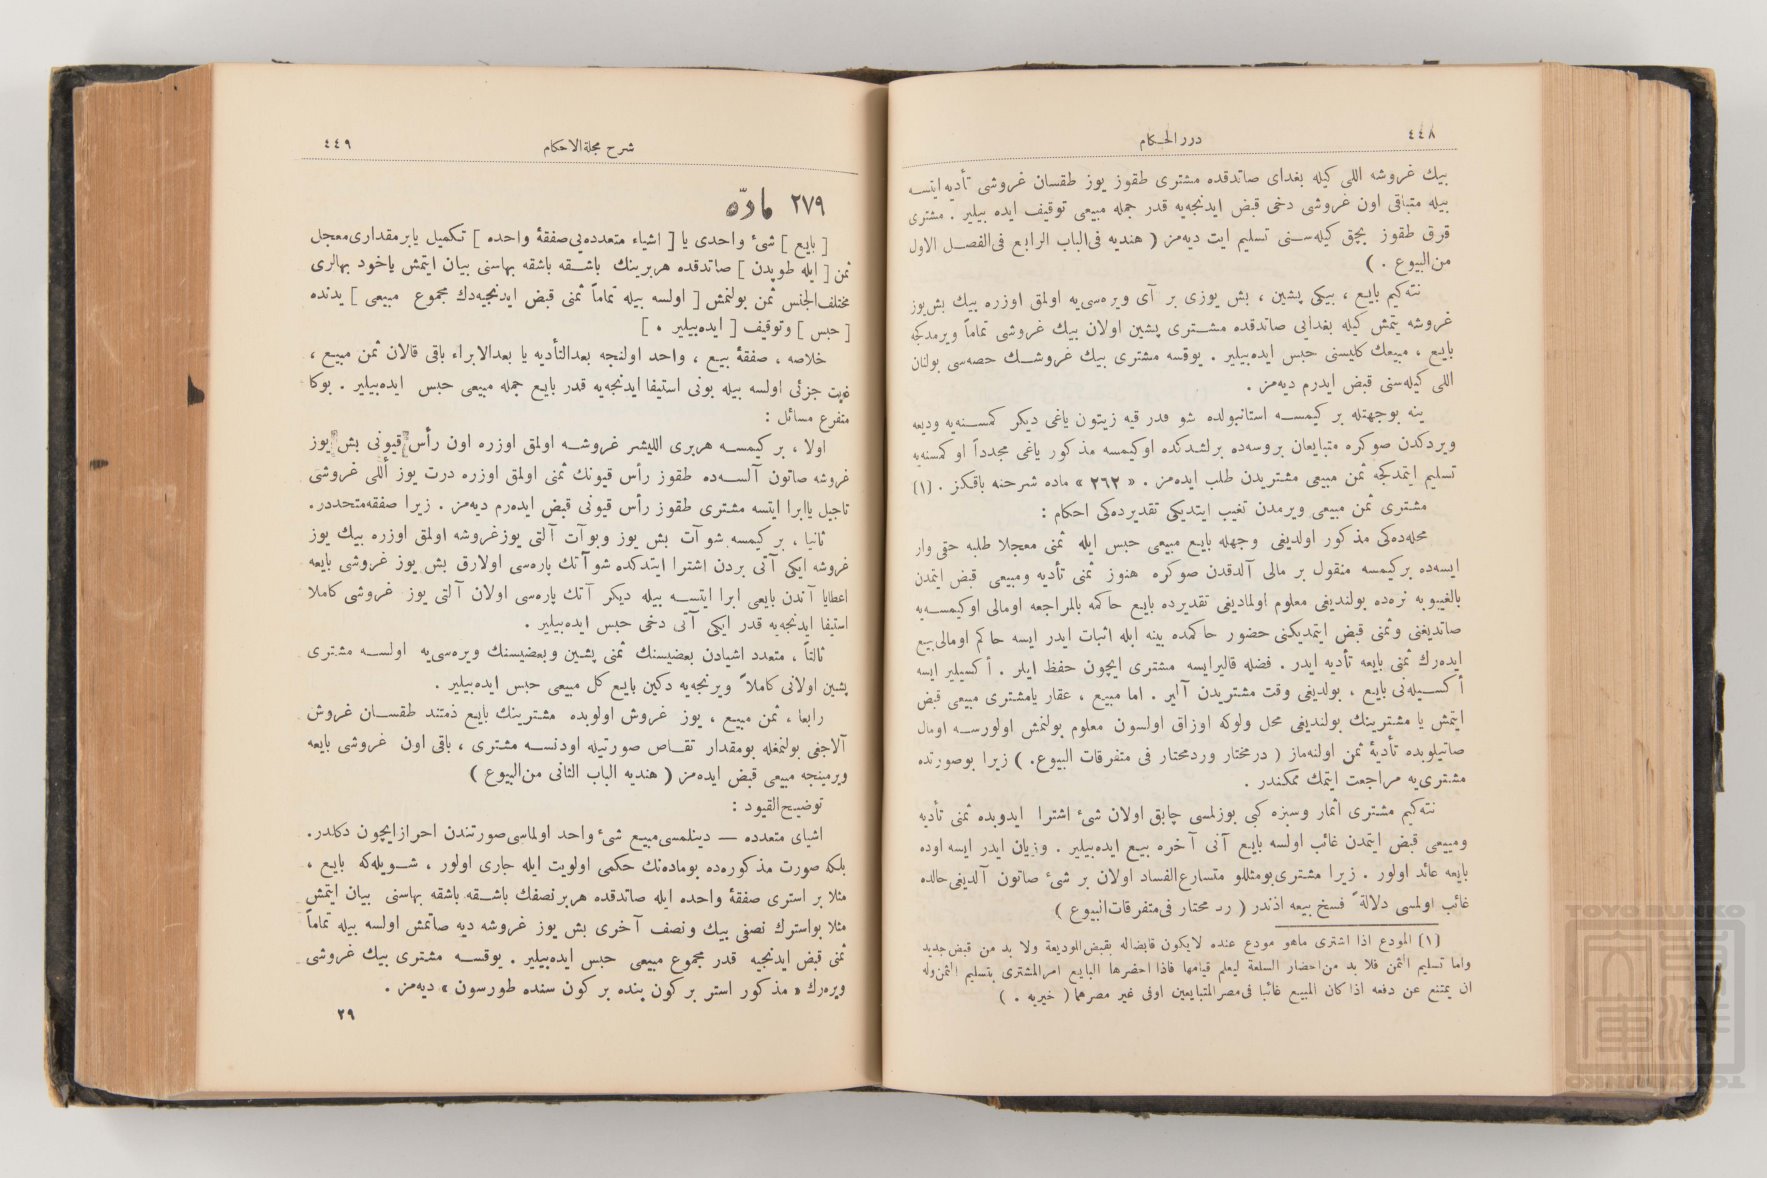 ٤٤٨
درر الحكام
بيك غروشه اللی كيله بغدای صاتدقده مشتری طقوز يوز طقسان غروشی تأديه ايتسه
بيله متباقی اون غروشی دخی قبض ايدنجه‌يه قدر جمله مبيعی توقيف ايده بيلير . مشتری
قرق طقوز بچق كيله‌سنی تسليم ايت ديه‌مز ( هنديه فی‌الباب الرابع فی‌الفصل الاول
من‌البيوع . )
نته‌كيم بايع ، بيكی پشين ، بش يوزی بر آی ويره‌سی‌يه اولمق اوزره بيك بش‌يوز
غروشه يتمش كيله بغدايی صاتدقده مشتری پشين اولان بيك غروشی تماماً ويرمدكجه
بايع ، مبيعك كليسنی حبس ايده‌بيلير . يوقسه مشتری بيك غروشك حصه‌سی بولنان
اللی كيله‌سنی قبض ايدرم ديه‌مز .
ينه بوجهتله بر كيمسه استانبولده شو قدر قيه زيتون ياغی ديكر كمسنه‌يه وديعه
ويردكدن صوكره متبايعان بروسه‌ده برلشدكده اوكيمسه مذكور ياغی مجدداً اوكمسنه‌يه
تسليم ايتمدكجه ثمن مبيعی مشتريدن طلب ايده‌مز . « ٢٦٢ » ماده شرحنه باقكز . (١)
مشتری ثمن مبيعی ويرمدن تغيب ايتديكی تقديرده‌كی احكام :
مجله‌ده‌كی مذكور اولديغی وجهله بايع مبيعی حبس ايله ثمنی معجلا طلبه حقی وار
ايسه‌ده بركيمسه منقول بر مالی آلدقدن صوكره هنوز ثمنی تأديه ومبيعی قبض ايتمدن
بالغيبوبه نره‌ده بولنديغی معلوم اولماديغی تقديرده بايع حاكمه بالمراجعه اومالی اوكيمسه‌يه
صاتديغنی وثمنی قبض ايتمديكنی حضور حاكمده بينه ايله اثبات ايدر ايسه حاكم اومالی بيع
ايده‌رك ثمنی بايعه تأديه ايدر . فضله قاليرايسه مشتری ايچون حفظ ايلر . أكسيلير ايسه
أكسيله‌نی بايع ، بولديغی وقت مشتريدن آلير . اما مبيع ، عقار يامشتری مبيعی قبض
ايتمش يا مشترينك بولنديغی محل ولوكه اوزاق اولسون معلوم بولنمش اولورسه اومال
صاتيلوبده تأديهٔ ثمن اولنه‌ماز ( درمختار وردمحتار فی متفرقات البيوع. ) زيرا بوصورتده
مشتری‌يه مراجعت ايتمك ممكندر .
نته‌كيم مشتری اثمار وسبزه كبی بوزلمسی چابق اولان شیٔ اشترا ايدوبده ثمنی تأديه
ومبيعی قبض ايتمدن غائب اولسه بايع آنی آخره بيع ايده‌بيلير . وزيان ايدر ايسه اوده
بايعه عائد اولور . زيرا مشتری‌بومثللو متسارع‌الفساد اولان بر شیٔ صاتون آلديغی‌حالده
غائب اولمسی دلالةً فسخ بيعه اذندر ( رد محتار فی‌متفرقات‌البيوع )
(١) المودع اذا اشتری ماهو مودع عنده لايكون قابضاله بقبض‌الوديعة ولا بد من قبض‌جديد
واما تسليم الثمن فلا بد من‌احضار السلعة ليعلم قيامها فاذا احضرها البايع امرالمشتری بتسليم الثمن‌وله
ان يمتنع عن دفعه اذاكان المبيع غائبا فی‌مصرالمتبايعين اوفی غير مصرهما ( خيريه . )
٤٤٩
شرح مجلةالاحكام
٢٧٩ مادّه
[ بايع ] شیٔ واحدی يا [ اشياء متعدده‌يی‌صفقهٔ واحده ] تكميل يابرمقداری‌معجل
ثمن [ ايله طوپدن ] صاتدقده هربرينك باشقه باشقه بهاسنی بيان ايتمش ياخود بهالری
مختلف‌الجنس ثمن بولنمش [ اولسه بيله تماماً ثمنی قبض ايدنجيه‌دك مجموع مبيعی ] يدنده
[ حبس ] وتوقيف [ ايده‌بيلير . ]
خلاصه ، صفقهٔ بيع ، واحد اولنجه بعدالتأديه يا بعدالابراء باقی قالان ثمن مبيع ،
غايت جزئی اولسه بيله بونی استيفا ايدنجه‌يه قدر بايع جمله مبيعی حبس ايده‌بيلير . بوكا
متفرع مسائل :
اولا ، بر كيمسه هربری الليشر غروشه اولمق اوزره اون رأس قيونی بش يوز
غروشه صاتون آلسه‌ده طقوز رأس قيونك ثمنی اولمق اوزره درت يوز أللی غروشی
تاجيل ياابرا ايتسه مشتری طقوز رأس قيونی قبض ايده‌رم ديه‌مز . زيرا صفقه‌متحددر.
ثانيا ، بر كيمسه شو آت بش يوز وبوآت آلتی يوزغروشه اولمق اوزره بيك يوز
غروشه ايكی آتی بردن اشترا ايتدكده شو آتك پاره‌سی اولارق بش يوز غروشی بايعه
اعطايا آتدن بايعی ابرا ايتسه بيله ديكر آتك پاره‌سی اولان آلتی يوز غروشی كاملا
استيفا ايدنجه‌يه قدر ايكی آتی دخی حبس ايده‌بيلير .
ثالثاً ، متعدد اشيادن بعضيسنك ثمنی پشين وبعضيسنك ويره‌سی‌يه اولسه مشتری
پشين اولانی كاملاً ويرنجه‌يه دكين بايع كل مبيعی حبس ايده‌بيلير .
رابعا ، ثمن مبيع ، يوز غروش اولوبده مشترينك بايع ذمتند طقسان غروش
آلاجغی بولنمغله بومقدار تقاص صورتيله اودنسه مشتری ، باقی اون غروشی بايعه
ويرمينجه مبيعی قبض ايده‌مز ( هنديه الباب الثانی من‌البيوع )
توضيح‌القيود :
اشيای متعدده — دينلمسی‌مبيع شیٔ واحد اولماسی‌صورتندن احرازايچون دكلدر.
بلكه صورت مذكوره‌ده بوماده‌نك حكمی اولويت ايله جاری اولور ، شويله‌كه بايع ،
مثلا بر استری صفقهٔ واحده ايله صاتدقده هربرنصفك باشقه باشقه بهاسنی بيان ايتمش
مثلا بواسترك نصفی بيك ونصف آخری بش يوز غروشه ديه صاتمش اولسه بيله تماماً
ثمنی قبض ايدنجيه قدر مجموع مبيعی حبس ايده‌بيلير . يوقسه مشتری بيك غروشی
ويره‌رك « مذكور استر بركون بنده بركون سنده طورسون » ديه‌مز .
٢٩
TOYO BUNKO